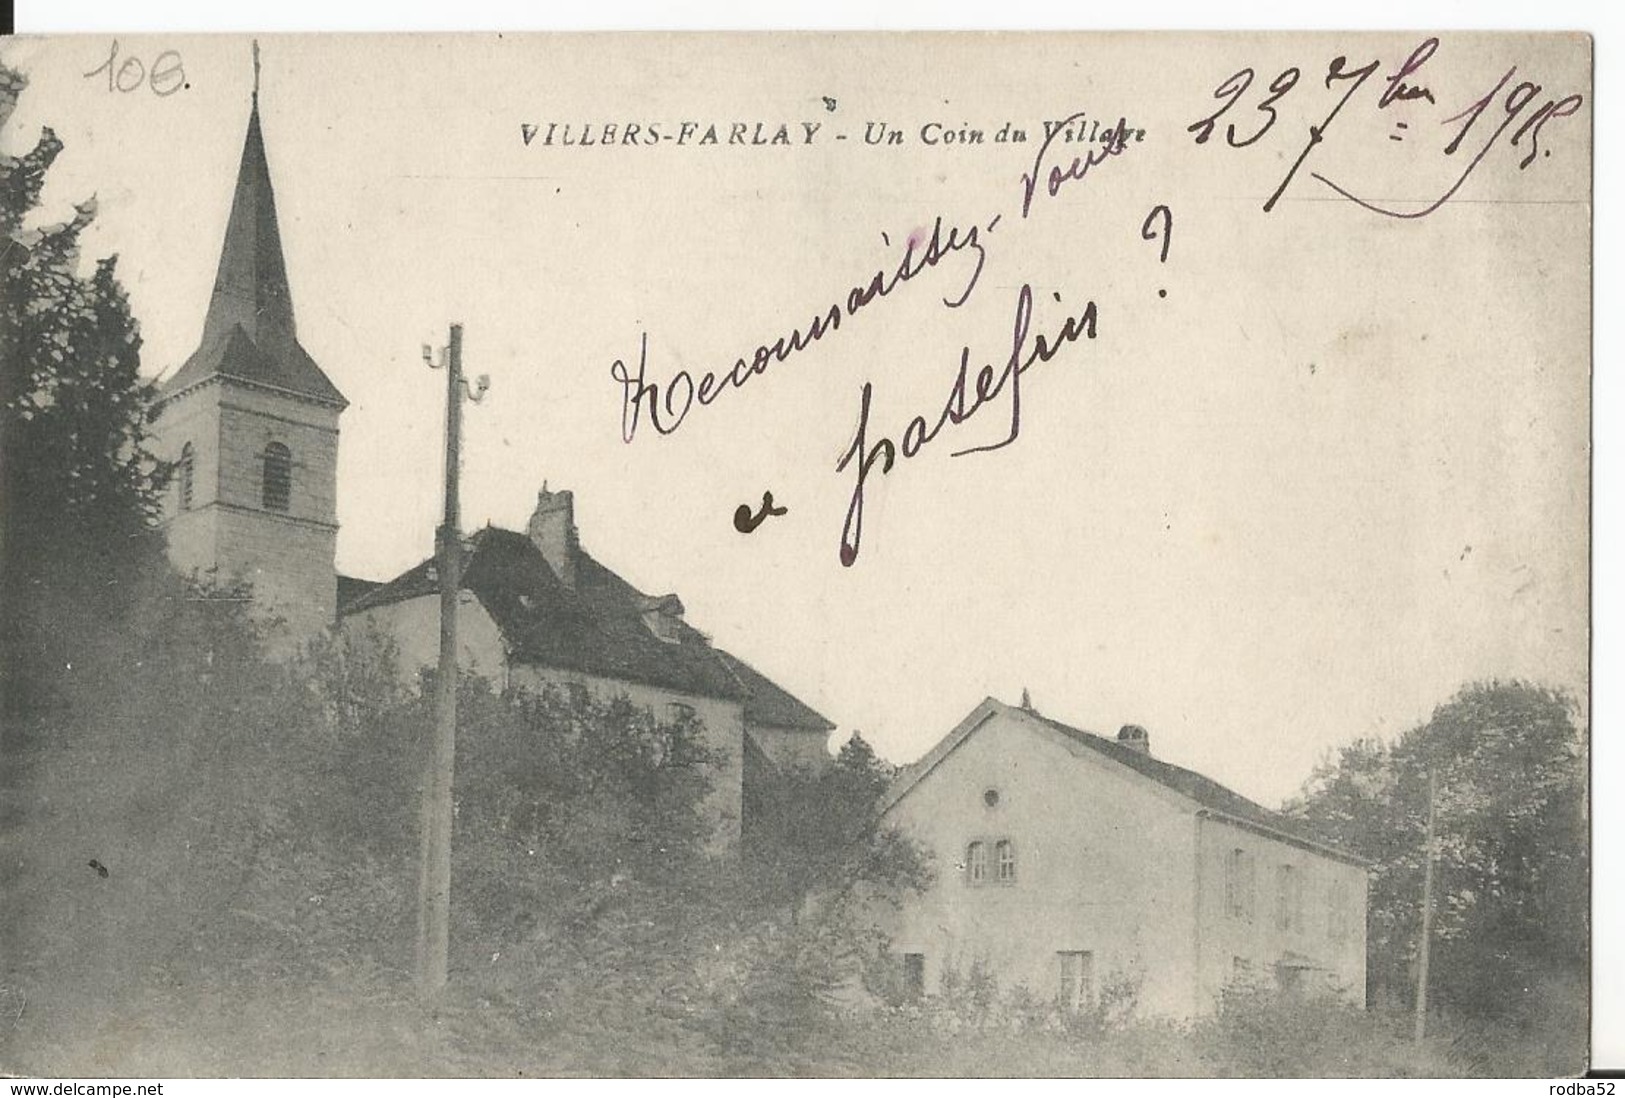 108.
VILLERS-FARLAY - Un Coin du Village
23 7bre 1915.
Reconnaissez-vous
ce patelin ?
www.delcampe.net
rodba52